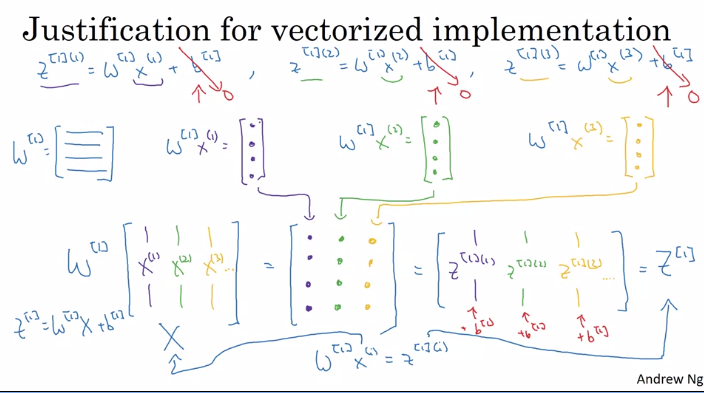 Justification for vectorized implementation
z^{[1](1)} = W^{[1]} x^{(1)} + b^{[1]} , z^{[1](2)} = W^{[1]} x^{(2)} + b^{[1]} , z^{[1](3)} = W^{[1]} x^{(3)} + b^{[1]}
0 0 0
W^{[1]} = [ ] W^{[1]} x^{(1)} = [ ] W^{[1]} x^{(2)} = [ ] W^{[1]} x^{(3)} = [ ]
W^{[1]} [ x^{(1)} x^{(2)} x^{(3)} ... ] = [ ] = [ z^{[1](1)} z^{[1](2)} z^{[1](3)} ... ] = Z^{[1]}
+b^{[1]} +b^{[1]} +b^{[1]}
z^{[1]} = W^{[1]} X + b^{[1]} X
W^{[1]} x^{(i)} = z^{[1](i)}
Andrew Ng